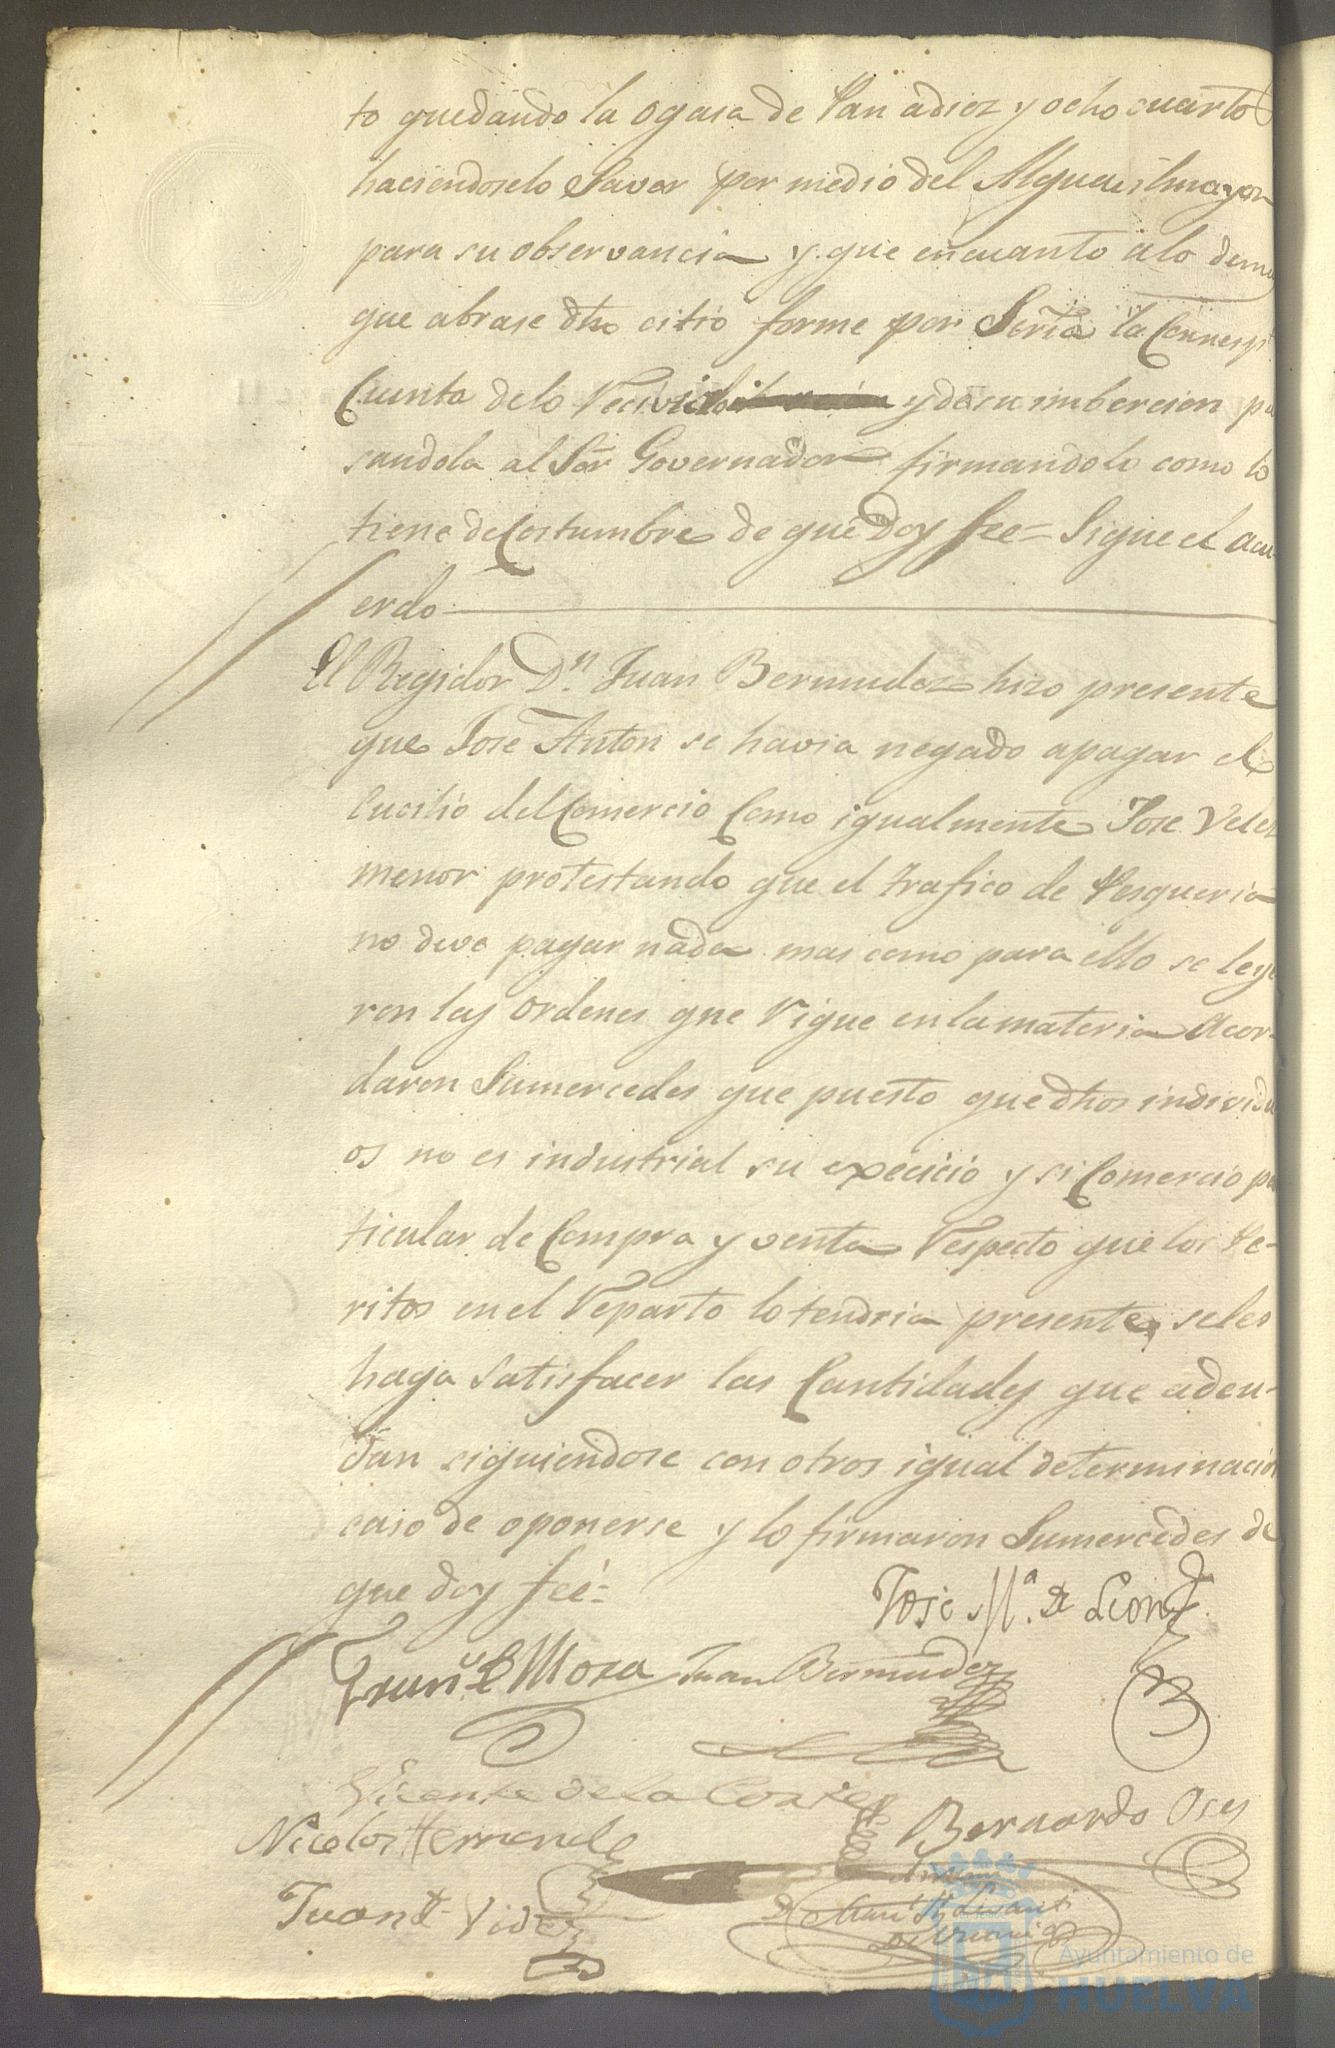 to quedando la ogasa de Pan adiez y ocho cuarto
haciendoselo Saver por medio del Alguasil mayor
para su observancia y que encuanto alo dema
que abrase dho citio forme por Sertª la Corresp
Cuenta delo Recivido y de su imbercion pa
sandola al Sor Governador firmandolo como lo
tiene de Costumbre de que Doy fee = Sigue el acu-
erdo
El Regidor Dn. Juan Bermudez hizo presente
que Jose Anton se havia negado apagar el
Cucilio del Comercio Como igualmente Jose Velez
menor protestando que el trafico de Pesqueria
no deve pagar nada mas como para ello se leye
ron las ordenes que Rigue enlamateria Acor-
daron Sumercedes que puesto que dhos individu
os no es industrial su execicio y si Comercio pa
ticular de Compra y venta Respecto que los Pe-
ritos en el Reparto lo tendria presente, seles
haga Satisfacer las Cantidades que adeu-
dan siguiendose con otros igual determinacion
caso de oponerse y lo firmaron Sumercedes de
que doy feé=
Jose Mª. de Leon
Mora Juan Bermudez
Vicente de la Corte
Bernardo Oses
Nicolas Hernande
Juan Videz
Ayuntamiento de
HUELVA